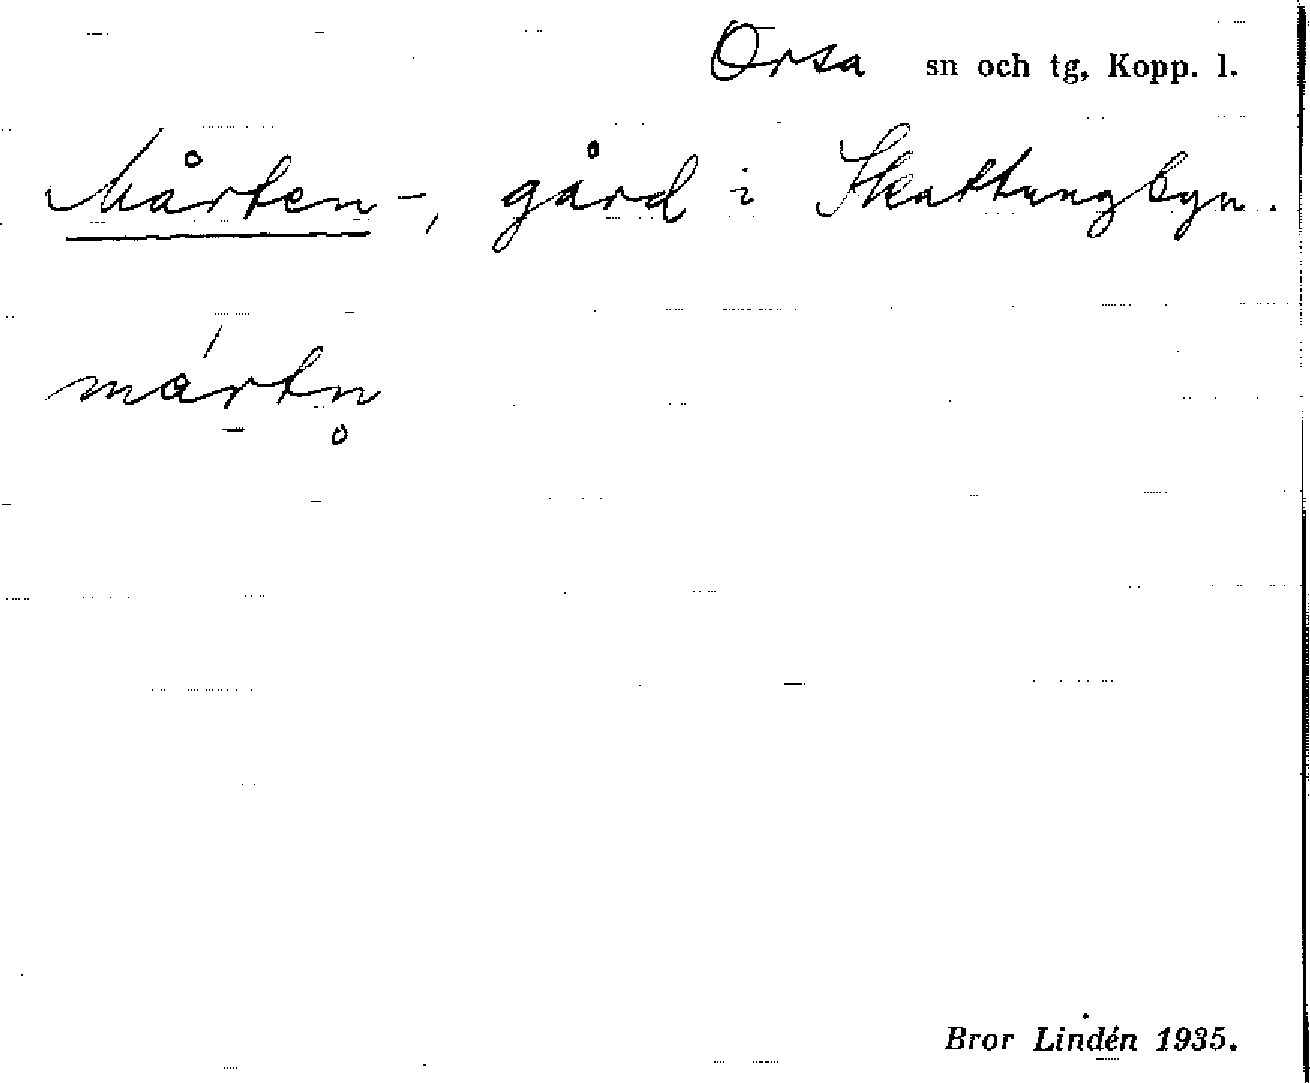 Orsa sn och tg, Kopp. l.
Mårten-, gård i Skattungbyn.
mártn̥
Bror Lindén 1935.